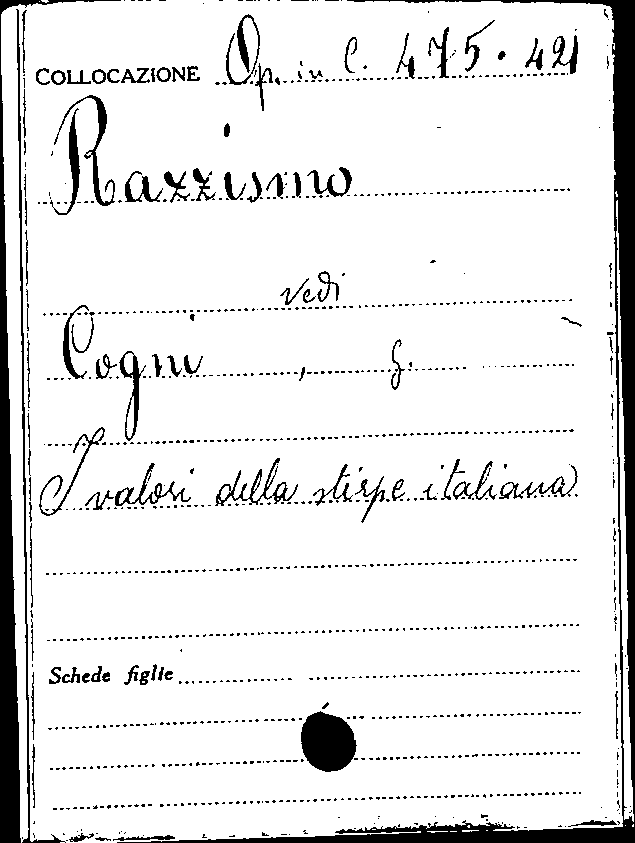 COLLOCAZIONE Op. in C. 475. 421
Razzismo
vedi
Cogni, G.
I valori della stirpe italiana
Schede figlie